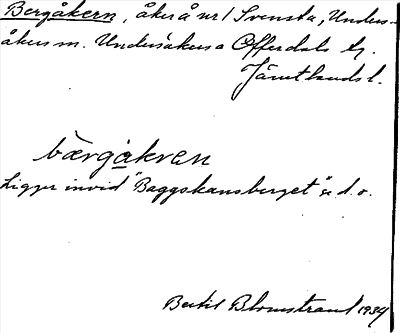 Bergåkern, åker å nr 1 Svensta, Unders-
åkers sn. Undersåkers o Offerdals tg.
Jämtlands l.
bærgåkren
Ligger invid "Baggskansberget" se d. o.
Bertil Blomstrand 1934